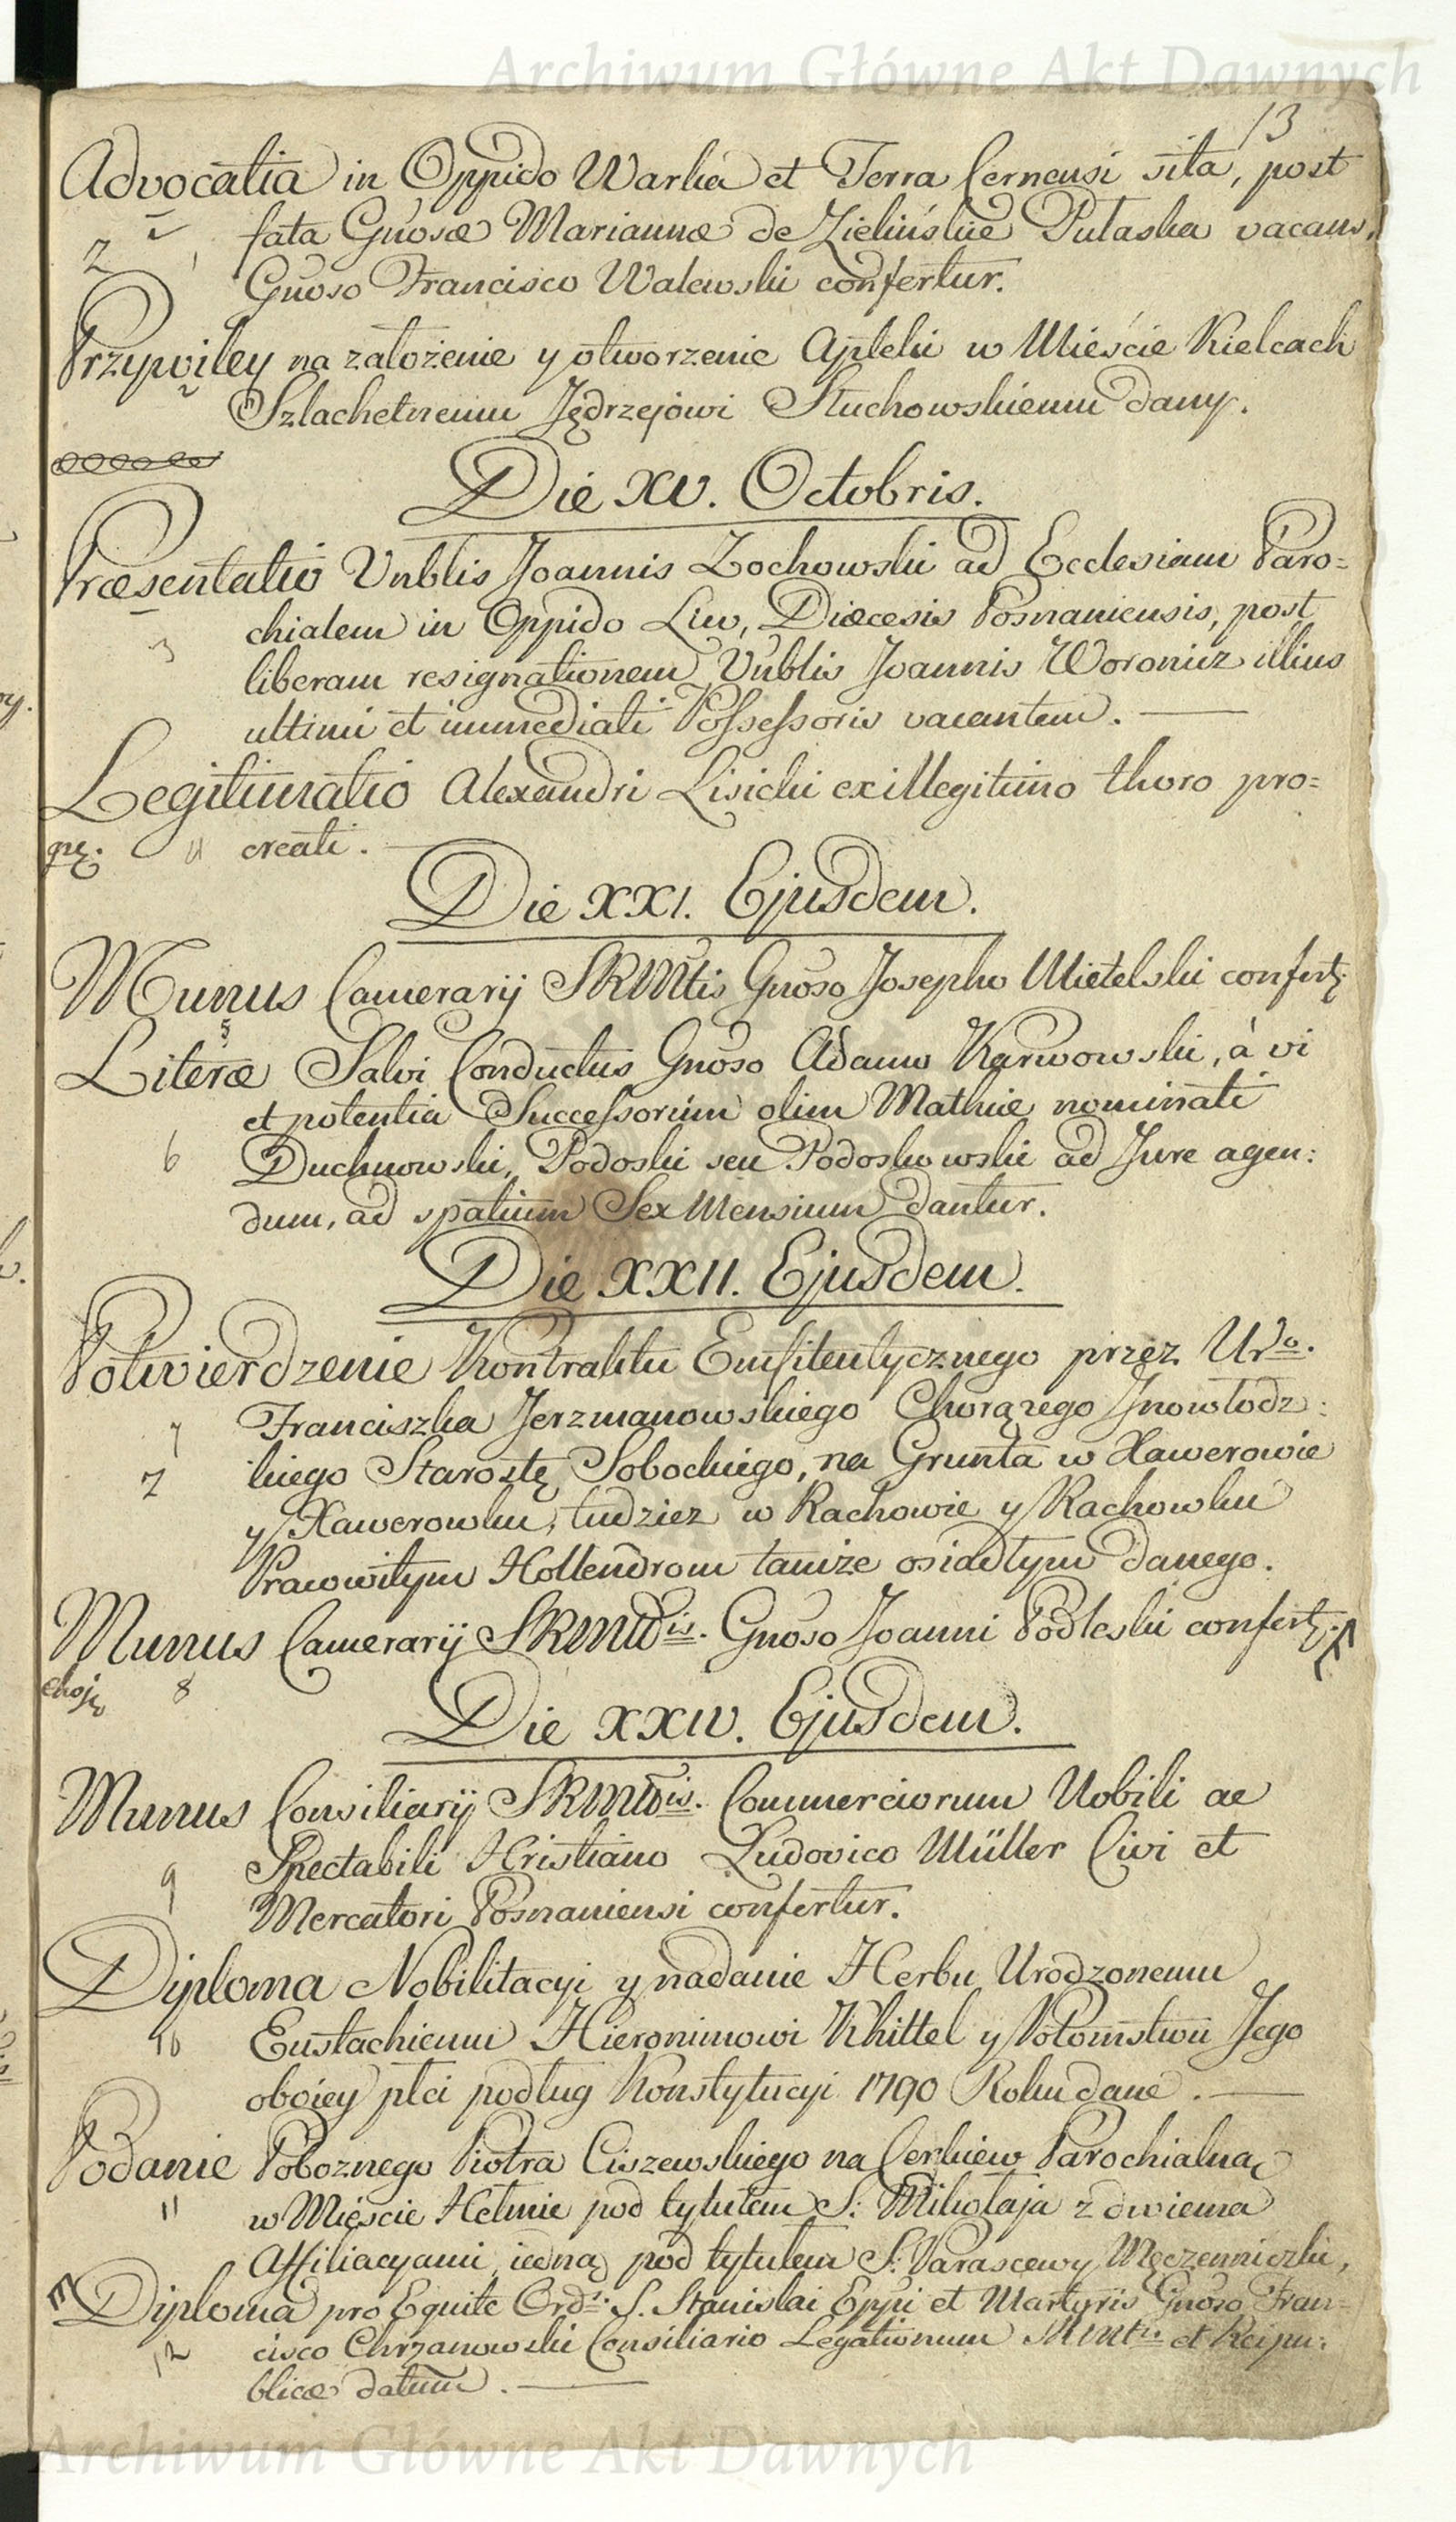 Archiwum Główne Akt Dawnych
13
Advocatia in Oppido Warka et Terra Cernensi sita, post
fata Gnosæ Mariannæ de Zielińskie Pułaska vacans,
2
Gnoso Francisco Walewski confertur.
Przywiley na założenie y otworzenie Apteki w Mieście Kielcach
Szlachetnemu Jędrzejowi Stuchowskiemu dany.
Die XV. Octobris.
Præsentatio Vnblis Joannis Zochowski ad Ecclesiam Paro=
chialem in Oppido Liw, Diæcesis Posnaniensis, post
3
liberam resignationem Vnblis Joannis Woronicz illius
ultimi et immediati Possessoris vacantem.
Legitimatio Alexandri Lisicki ex illegitimo thoro pro=
4 creati.
Die XXI. Ejusdem.
Munus Camerarij SRMtis Gnoso Josepho Mietelski confert;
5
Literæ Salvi Conductus Gnoso Adamo Karwowski, à vi
et potentia Successorum olim Mathiæ nominati
6 Duchnowski, Podoski seu Podoskowski ad Jure agen:
dum, ad spatium Sex Mensium dantur.
Die XXII. Ejusdem.
Potwierdzenie Kontraktu Emfiteutycznego przez Uro.
7 Franciszka Jerzmanowskiego Chorązego Jnowłodz:
2 kiego Starostę Sobockiego, na Grunta w Xawerowie
y Xawerowku, tudziez w Rachowie y Rachowku
Pracowitym Hollendrom tamże osiadłym danego.
Munus Camerarij SRMtis. Gnoso Joanni Podleski confert;
8
Die XXIV. Ejusdem.
Munus Consiliarij SRMtis. Commerciorum Nobili ac
9 Spectabili Hristiano Ludovico Müller Civi et
Mercatori Posnaniensi confertur.
Diploma Nobilitacyi y nadanie Herbu Urodzonemu
10 Eustachiemu Hieronimowi Khittel y Potomstwu Jego
oboiey płci podług Konstytucyi 1790 Roku dane.
Podanie Poboznego Piotra Ciszewskiego na Cerkiew Parochialną
11 w Mieście Hełmie pod tytułem S: Mikołaja z dwiema
Affiliacyami, iedną pod tytułem S: Parascewy Męczenniczki,
Diploma pro Equite Ord: S. Stanislai Eppi et Martyris Gnoso Fran=
12 cisco Chrzanowski Consiliario Legationum SRMtis et Reipu:
blicæ datum.
Archiwum Główne Akt Dawnych